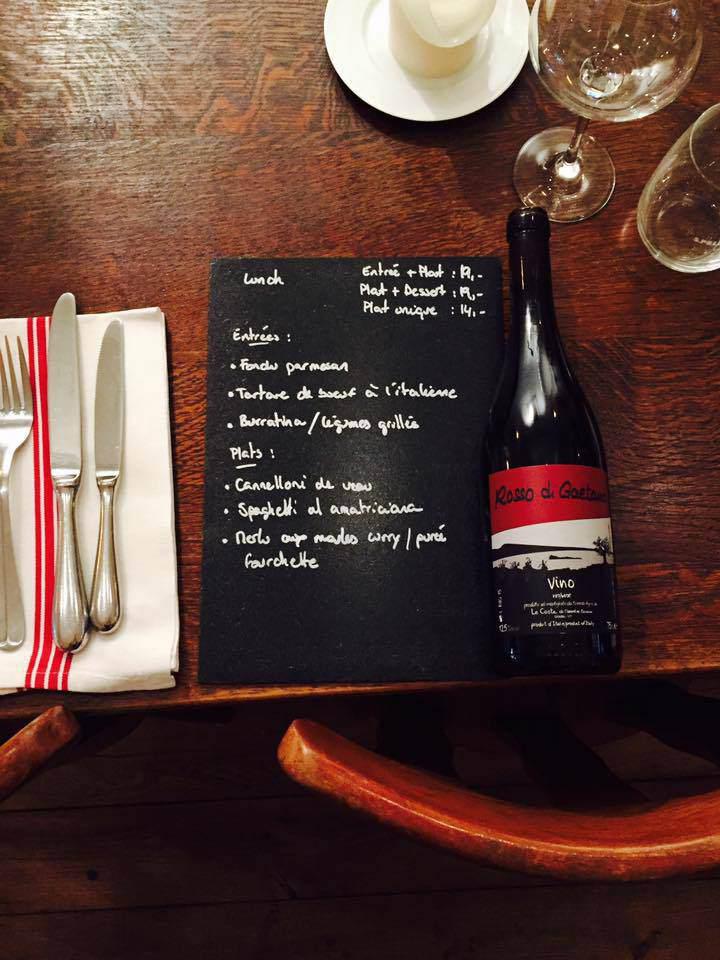 Lunch
Entrée + Plat : 19,-
Plat + Dessert : 19,-
Plat unique : 14,-
Entrées :
• Fondu parmesan
• Tartare de boeuf à l'italienne
• Burratina / légumes grillés
Plats :
• Cannelloni de veau
• Spaghetti al amatriciana
• Merlu aux moules curry / purée
fourchette
Rosso di Gaetano
Vino
Le Coste
product of Italy
12,5
75 cl